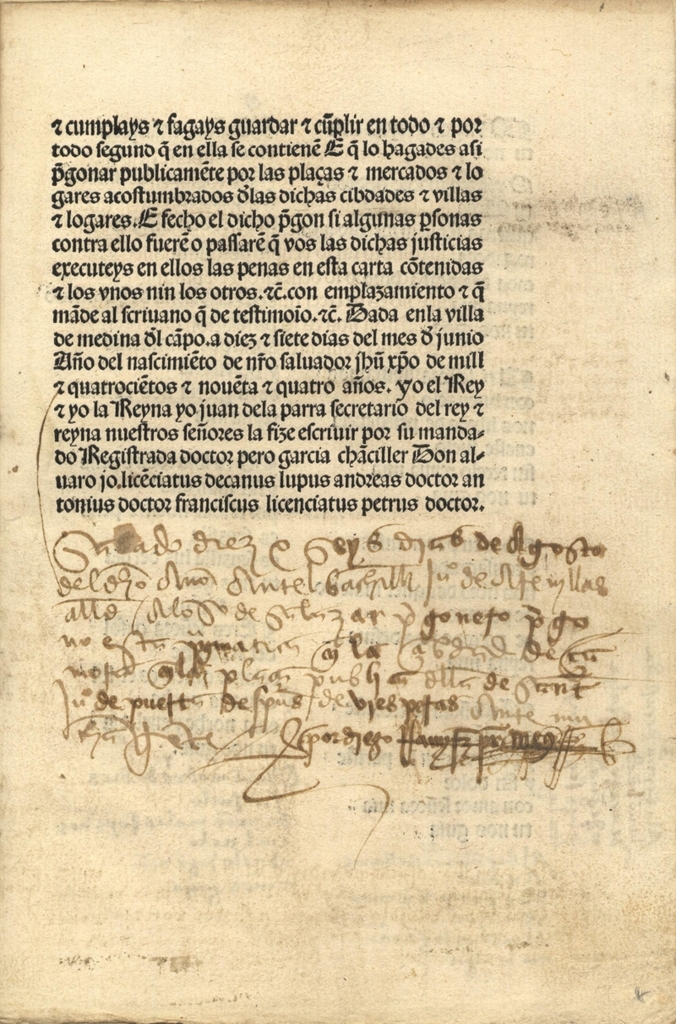 ⁊ cumplays ⁊ fagays guardar ⁊ cũplir en todo ⁊ por
todo segund q̃ en ella se contienẽ E q̃ lo hagades asi
p̃gonar publicamẽte por las plaças ⁊ mercados ⁊ lo
gares acostumbrados d̃las dichas cibdades ⁊ villas
⁊ logares. E fecho el dicho p̃gon si algunas ꝑsonas
contra ello fuerẽ o passarẽ q̃ vos las dichas justicias
executeys en ellos las penas en esta carta cõtenidas
⁊ los vnos nin los otros. ⁊c̃. con emplazamiento ⁊ q̃
mãde al scriuano q̃ de testimoĩo. ⁊c̃. Dada enla villa
de medina d̃l cãpo. a diez ⁊ siete dias del mes d̃ junio
Año del nascimiẽto de nr̃o saluador jhũ xp̃o de mill
⁊ quatrociẽtos ⁊ nouẽta ⁊ quatro años. yo el Rey
⁊ yo la Reyna yo juan dela parra secretario del rey ⁊
reyna nuestros señores la fize escriuir por su manda-
do Registrada doctor pero garcia chãciller Don al-
uaro jo. licẽciatus decanus lupus andreas doctor an
tonius doctor franciscus licenciatus petrus doctor.
Sabado diez e seys dias de agosto
del dho año ante el bachiller juº de arenillas
allde alonso de salazar p̃gonero p̃go
no esta p̃matica en la cibdad de
en la plaça publica della de sant
juº de puerta despues de viesperas ante mi
por diego